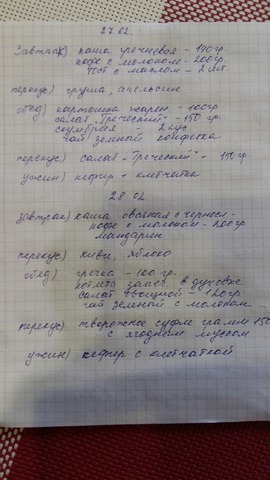 27.02.
Завтрак) каша гречневая - 190 гр.
кофе с молоком - 200 гр.
тост с маслом - 2 шт
перекус) груша, апельсин
обед) картошка жарен - 100 гр
салат "Греческий" - 150 гр.
скумбрия - 2 кус
чай зеленый конфетка
перекус) салат "Греческий" - 150 гр
ужин) кефир + клетчатка
28.02
завтрак) каша овсяная с чернос -
кофе с молоком - 200 гр
мандарин
перекус) киви, яблоко
обед) гречка - 100 гр.
котлета запеч. в духовке
салат овощной - 120 гр
чай зеленый с молоком
перекус) творожное суфле грамм 150
с ягодным муссом
ужин) кефир с клетчаткой